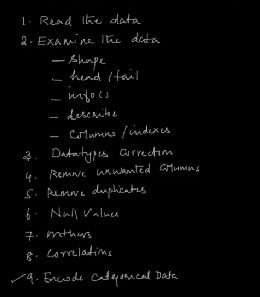 1. Read the data
2. Examine the data
– shape
– head / tail
– info()
– describe
– columns / indexes
3. Datatypes Correction
4. Remove unwanted columns
5. Remove duplicates
6. Null Values
7. outliers
8. Correlations
✓9. Encode Categorical Data